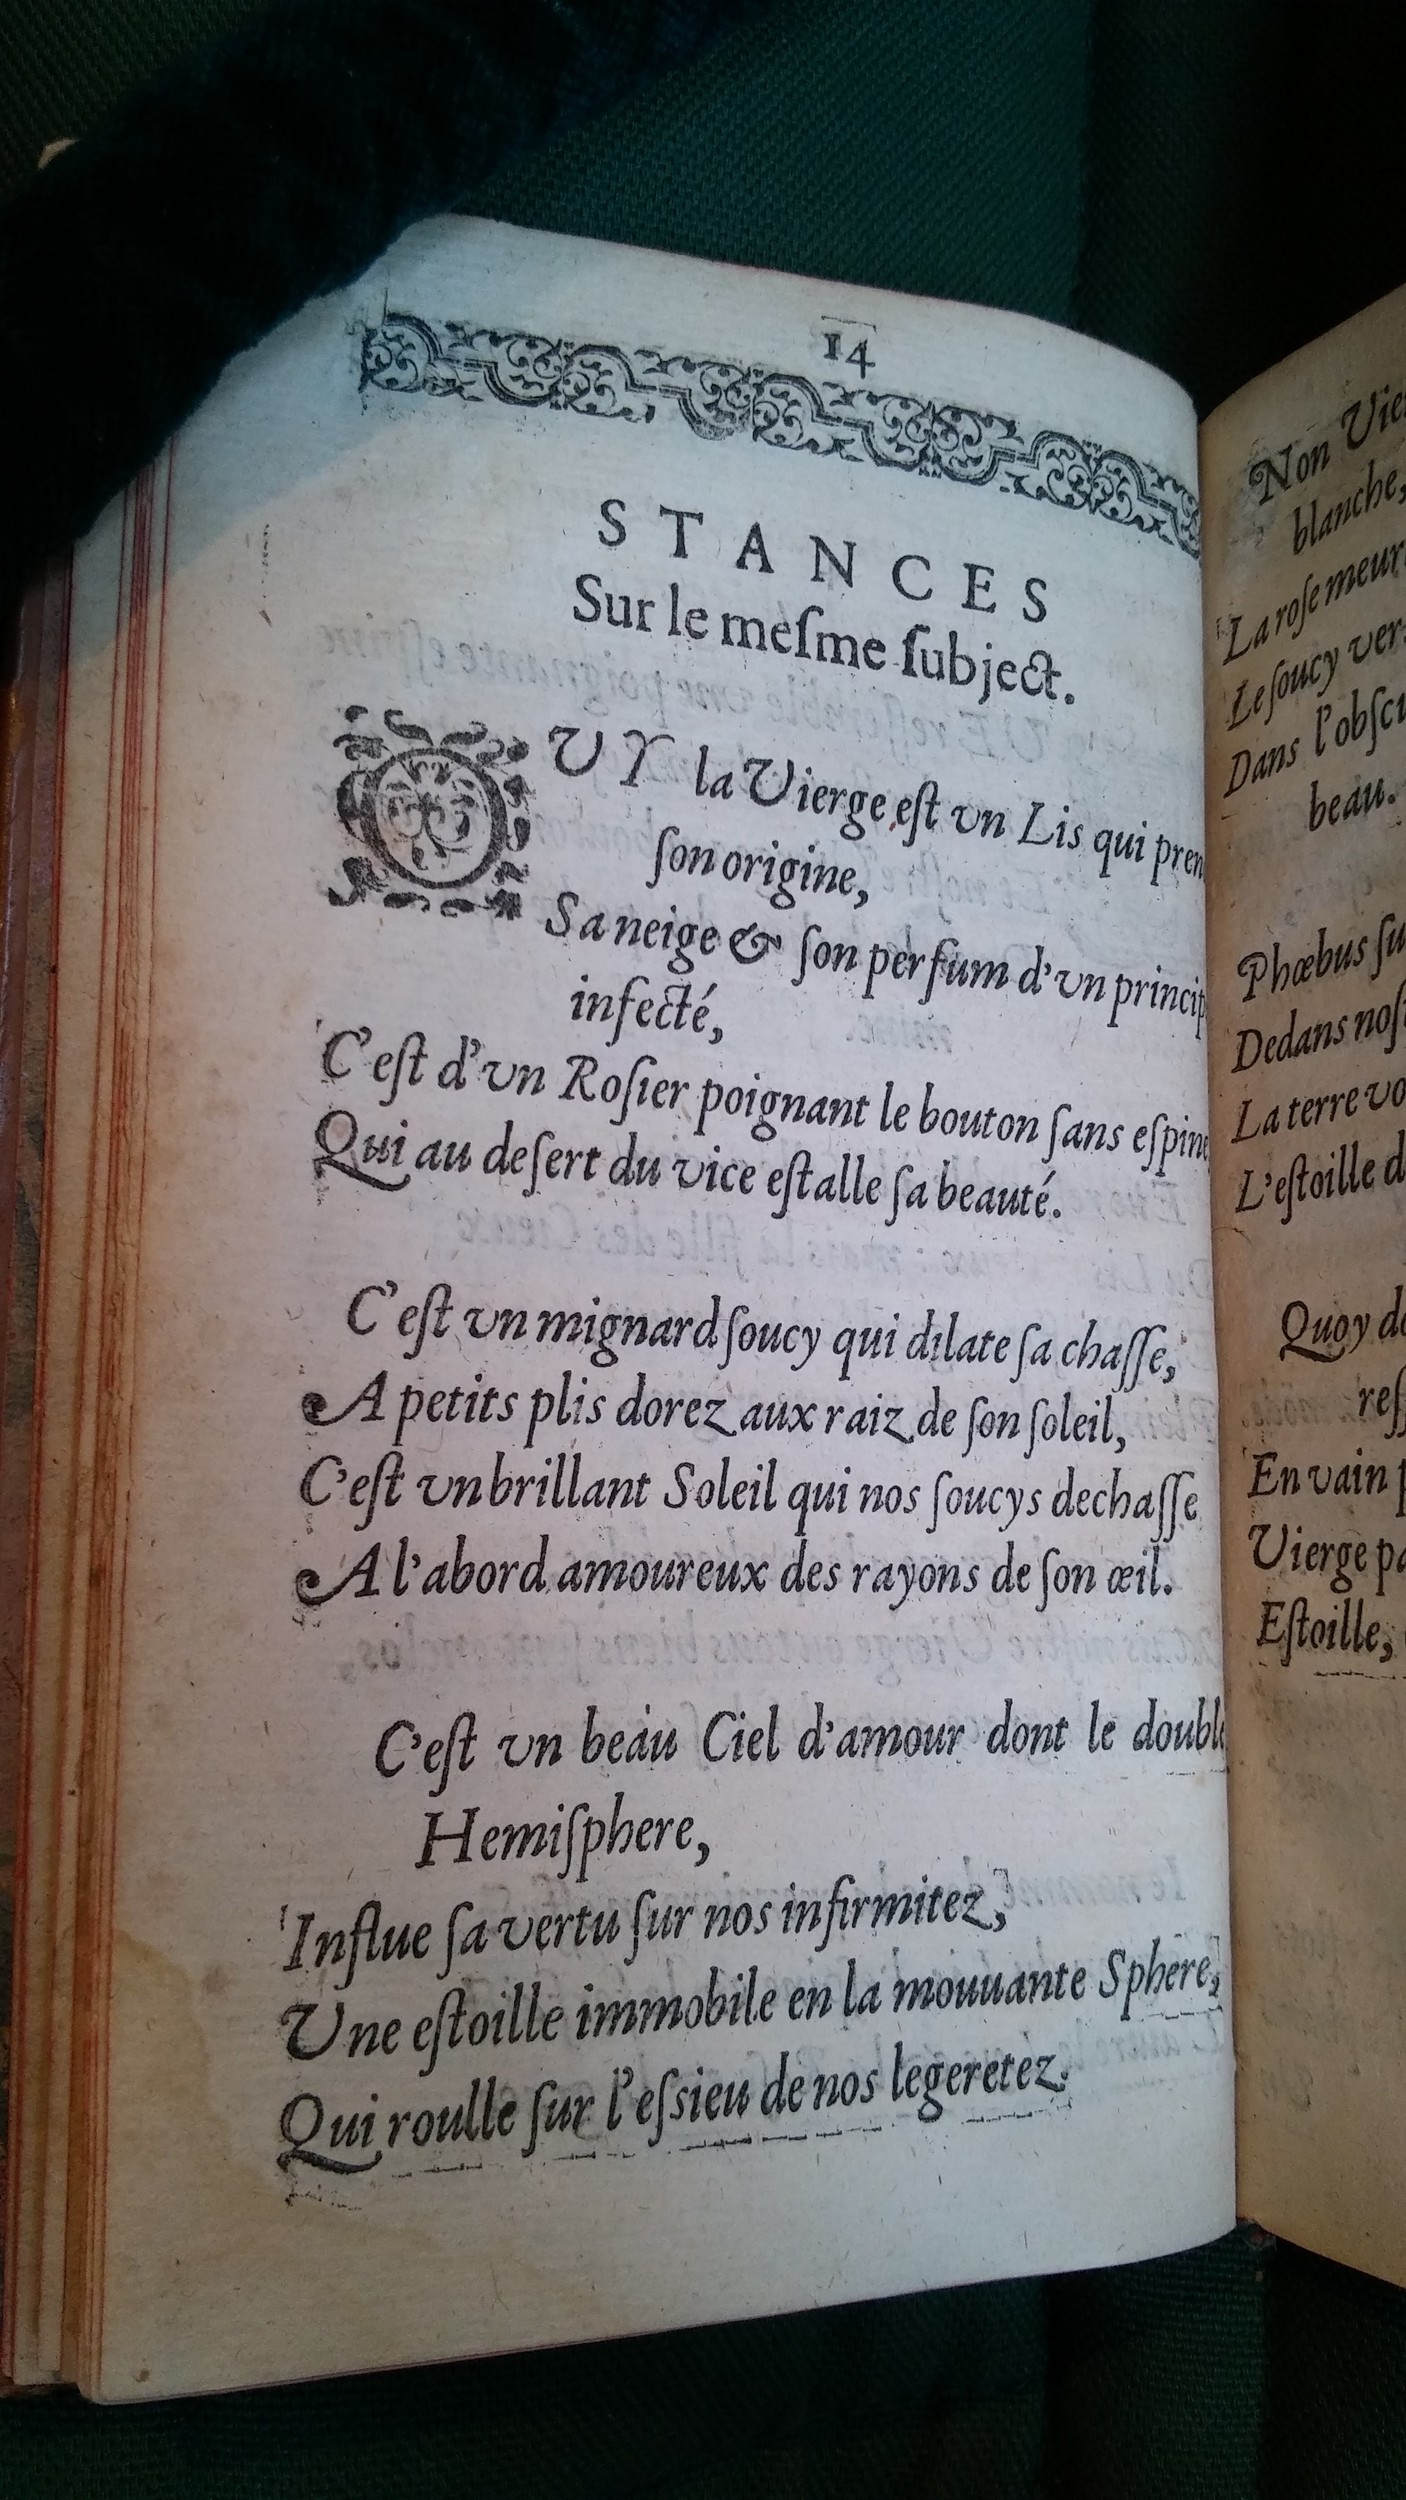 14
STANCES
Sur le meſme ſubject.
OVY la Vierge eſt vn Lis qui pren
ſon origine,
Sa neige & ſon perfum d'vn princip
infecté,
C'eſt d'vn Roſier poignant le bouton ſans eſpine
Qui au deſert du vice eſtalle ſa beauté.
C'eſt vn mignard ſoucy qui dilate ſa chaſſe,
A petits plis dorez aux raiz de ſon ſoleil,
C'eſt vn brillant Soleil qui nos ſoucys dechaſſe
A l'abord amoureux des rayons de ſon œil.
C'eſt vn beau Ciel d'amour dont le double
Hemiſphere,
Influe ſa vertu ſur nos infirmitez,
Vne eſtoille immobile en la mouuante Sphere,
Qui roulle ſur l'eſsieu de nos legeretez.
Non Vie
blanche,
La roſe meur
Le ſoucy ver
Dans l'obſcu
beau.
Phœbus ſu
Dedans noſ
La terre vo
L'eſtoille d
Quoy do
reſ
En vain p
Vierge pa
Eſtoille,